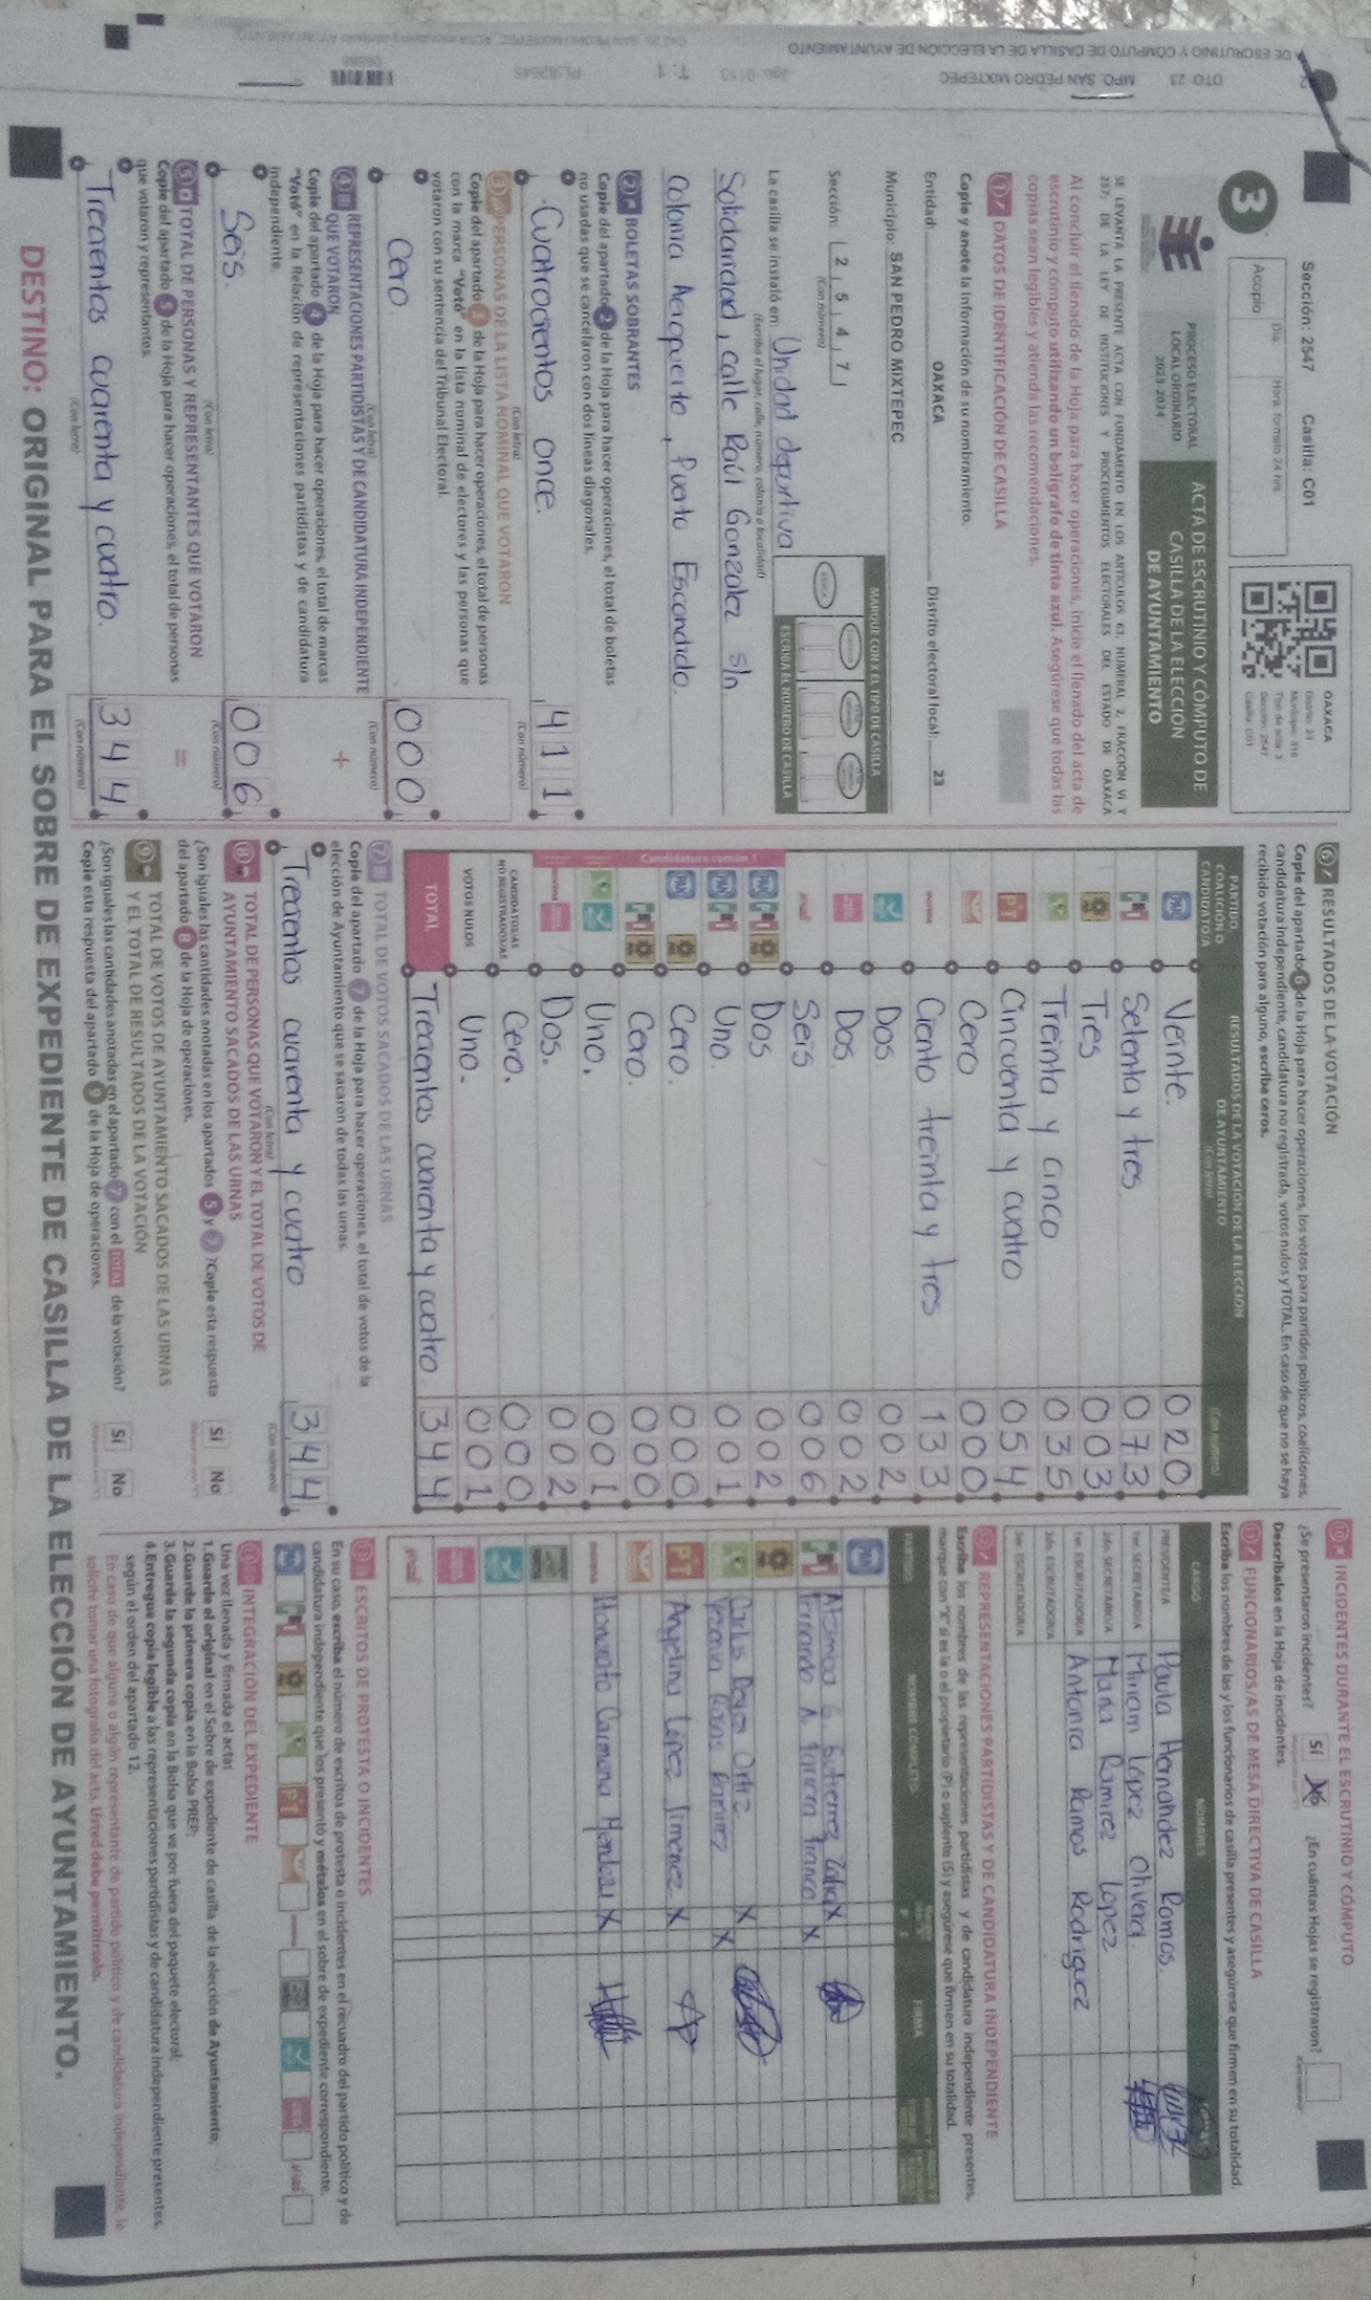 Sección: 2547 Casilla: C01
3
Acopio
Día:
Hora: formato 24 hrs
OAXACA
Distrito: 23
Tipo de acta: 3
Sección: 2547
Casilla: C01
PROCESO ELECTORAL
LOCAL ORDINARIO
2023-2024
ACTA DE ESCRUTINIO Y CÓMPUTO DE
CASILLA DE LA ELECCIÓN
DE AYUNTAMIENTO
SE LEVANTA LA PRESENTE ACTA CON FUNDAMENTO EN LOS ARTÍCULOS 63, NUMERAL 2, FRACCIÓN VI Y
237; DE LA LEY DE INSTITUCIONES Y PROCEDIMIENTOS ELECTORALES DEL ESTADO DE OAXACA
Al concluir el llenado de la Hoja para hacer operaciones, inicie el llenado del acta de
escrutinio y cómputo utilizando un bolígrafo de tinta azul. Asegúrese que todas las
copias sean legibles y atienda las recomendaciones.
1 DATOS DE IDENTIFICACIÓN DE CASILLA
Copie y anote la información de su nombramiento.
Entidad: OAXACA Distrito electoral local: 23
Municipio: SAN PEDRO MIXTEPEC
Sección: 2 5 4 7
(Con número)
MARQUE CON X EL TIPO DE CASILLA
ESCRIBA EL NÚMERO DE CASILLA
La casilla se instaló en: Unidad deportiva
(Escriba el lugar, calle, número, colonia o localidad)
Solidaridad, calle Raúl Gonzalez s/n
Colonia Aeropuerto, Puerto Escondido.
2 BOLETAS SOBRANTES
Copie del apartado 2 de la Hoja para hacer operaciones, el total de boletas
no usadas que se cancelaron con dos líneas diagonales.
Cuatrocientos once. 411
(Con letra) (Con número)
3 PERSONAS DE LA LISTA NOMINAL QUE VOTARON
Copie del apartado 3 de la Hoja para hacer operaciones, el total de personas
con la marca "Votó" en la lista nominal de electores y las personas que
votaron con su sentencia del Tribunal Electoral.
Cero. 000
(Con letra) (Con número)
4 REPRESENTACIONES PARTIDISTAS Y DE CANDIDATURA INDEPENDIENTE
QUE VOTARON
Copie del apartado 4 de la Hoja para hacer operaciones, el total de marcas
"Votó" en la Relación de representaciones partidistas y de candidatura
independiente.
+
Seis. 006
(Con letra) (Con número)
5 TOTAL DE PERSONAS Y REPRESENTANTES QUE VOTARON
Copie del apartado 5 de la Hoja para hacer operaciones, el total de personas
que votaron y representantes.
=
Trecientos cuarenta y cuatro. 344
(Con letra) (Con número)
6 RESULTADOS DE LA VOTACIÓN
Copie del apartado 6 de la Hoja para hacer operaciones, los votos para partidos políticos, coaliciones,
candidatura independiente, candidatura no registrada, votos nulos y TOTAL. En caso de que no se haya
recibido votación para alguno, escriba ceros.
PARTIDO,
COALICIÓN O
CANDIDATO/A
RESULTADOS DE LA VOTACIÓN DE LA ELECCIÓN
DE AYUNTAMIENTO
(Con letra)
(Con número)
PAN Veinte. 020
PRI Setenta y tres 073
PRD Tres 003
Treinta y cinco 035
PT Cincuenta y cuatro 054
Cero 000
morena Ciento treinta y tres 133
Dos 002
Dos. 002
Seis 006
Candidatura común 1
Dos 002
Uno. 001
Cero. 000
Cero. 000
Uno. 001
Dos. 002
CANDIDATOS/AS
NO REGISTRADOS/AS
Cero. 000
VOTOS NULOS Uno. 001
TOTAL Trecientos cuarenta y cuatro. 344
7 TOTAL DE VOTOS SACADOS DE LAS URNAS
Copie del apartado 7 de la Hoja para hacer operaciones, el total de votos de la
elección de Ayuntamiento que se sacaron de todas las urnas.
Trecientos cuarenta y cuatro 344
(Con letra) (Con número)
8 TOTAL DE PERSONAS QUE VOTARON Y EL TOTAL DE VOTOS DE
AYUNTAMIENTO SACADOS DE LAS URNAS
¿Son iguales las cantidades anotadas en los apartados 5 y 7? Copie esta respuesta
del apartado 8 de la Hoja de operaciones.
Sí No
9 TOTAL DE VOTOS DE AYUNTAMIENTO SACADOS DE LAS URNAS
Y EL TOTAL DE RESULTADOS DE LA VOTACIÓN
¿Son iguales las cantidades anotadas en el apartado 7 con el TOTAL de la votación?
Copie esta respuesta del apartado 9 de la Hoja de operaciones.
Sí No
10 INCIDENTES DURANTE EL ESCRUTINIO Y CÓMPUTO
¿Se presentaron incidentes? Sí No ¿En cuántas Hojas se registraron?
Descríbalos en la Hoja de incidentes.
11 FUNCIONARIOS/AS DE MESA DIRECTIVA DE CASILLA
Escriba los nombres de las y los funcionarios de casilla presentes y asegúrese que firmen en su totalidad.
CARGO NOMBRES FIRMAS
PRESIDENTE/A Paula Hernandez Ramos.
1er. SECRETARIO/A Miriam López Olivera.
2do. SECRETARIO/A Maria Ramirez Lopez
1er. ESCRUTADOR/A Antonia Ramos Rodriguez
2do. ESCRUTADOR/A
3er. ESCRUTADOR/A
12 REPRESENTACIONES PARTIDISTAS Y DE CANDIDATURA INDEPENDIENTE
Escriba los nombres de las representaciones partidistas y de candidatura independiente presentes,
marque con "X" si es la o el propietario (P) o suplente (S) y asegúrese que firmen en su totalidad.
PARTIDO NOMBRE COMPLETO P S FIRMA
PAN
X
X
Carlos Reyes Ortiz X
X
PT Angelina Lopez Jimenez. X
morena Honorato Carmona Mendoza X
13 ESCRITOS DE PROTESTA O INCIDENTES
En su caso, escriba el número de escritos de protesta o incidentes en el recuadro del partido político y de
candidatura independiente que los presentó y métalos en el sobre de expediente correspondiente.
14 INTEGRACIÓN DEL EXPEDIENTE
Una vez llenada y firmada el acta:
1. Guarde el original en el Sobre de expediente de casilla de la elección de Ayuntamiento;
2. Guarde la primera copia en la Bolsa PREP;
3. Guarde la segunda copia en la Bolsa que va por fuera del paquete electoral;
4. Entregue copia legible a las representaciones partidistas y de candidatura independiente presentes,
según el orden del apartado 12.
En caso de que alguna o algún representante de partido político y de candidatura independiente, le
solicite tomar una fotografía del acta, Usted debe permitírselo.
DESTINO: ORIGINAL PARA EL SOBRE DE EXPEDIENTE DE CASILLA DE LA ELECCIÓN DE AYUNTAMIENTO.
DE ESCRUTINIO Y CÓMPUTO DE CASILLA DE LA ELECCIÓN DE AYUNTAMIENTO
DTO 23 MPO. SAN PEDRO MIXTEPEC